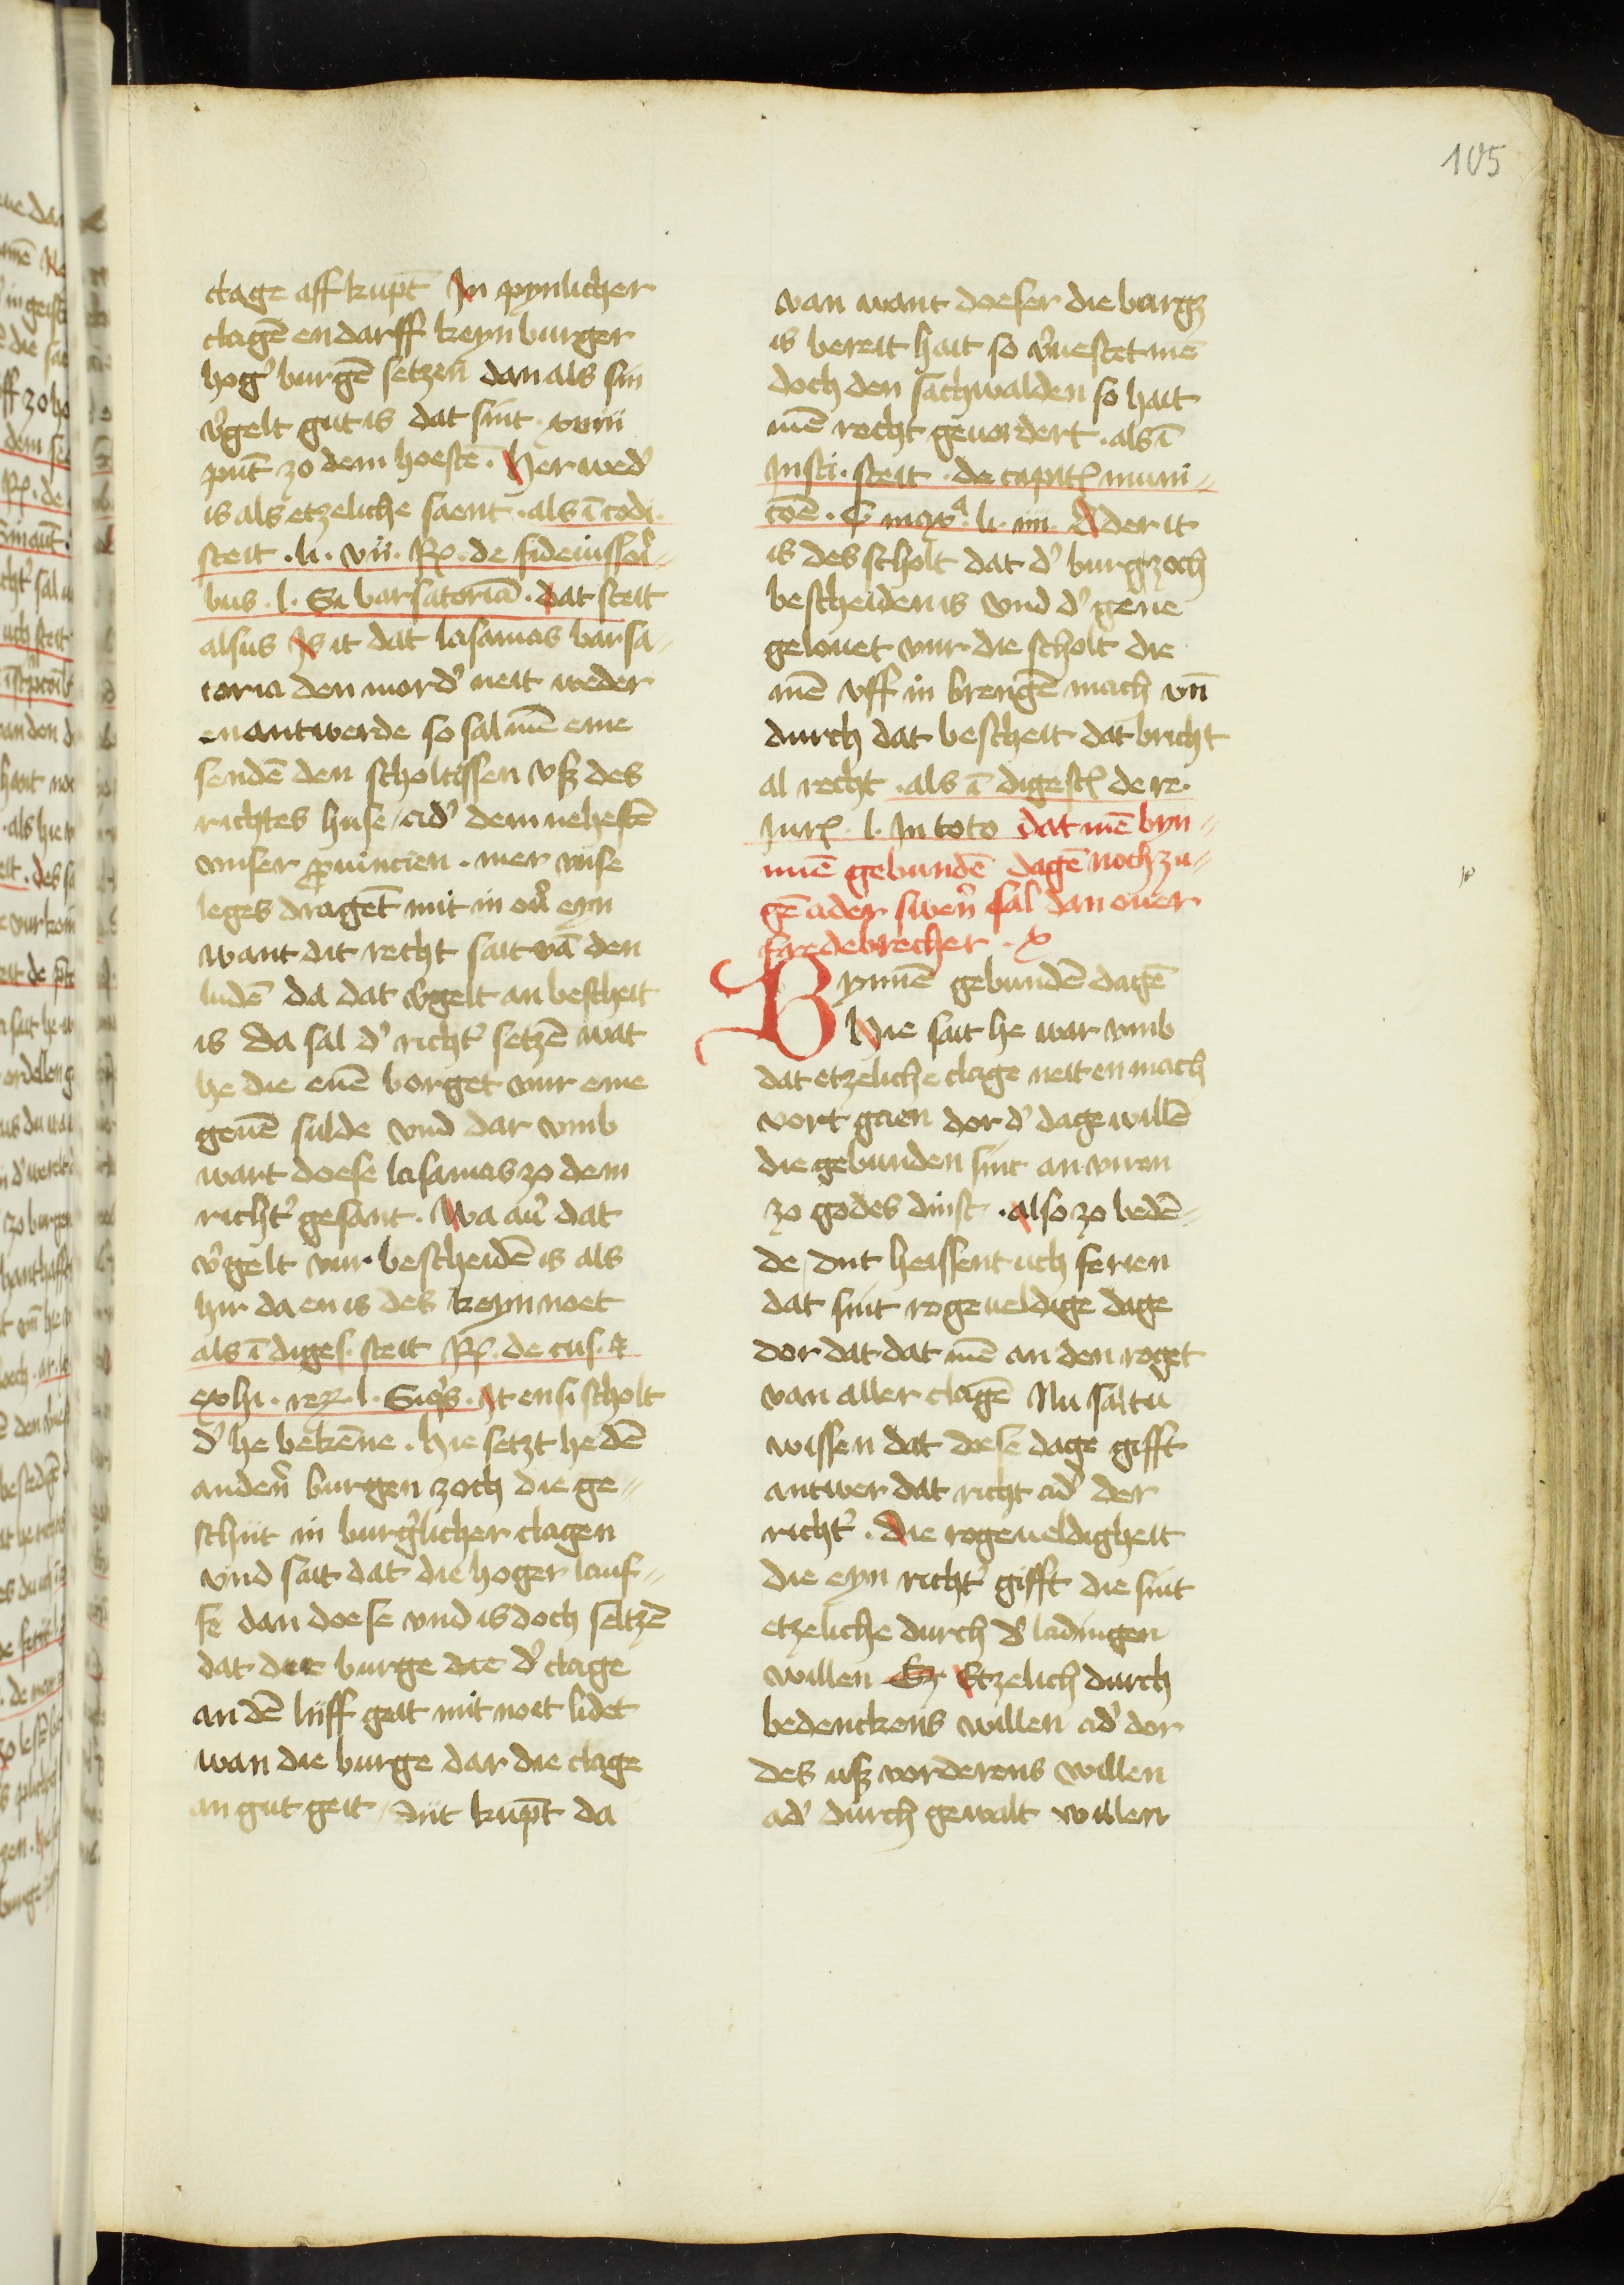 105
clage aff kupt̄ In pynlicher
clagē en darff keyn burger
hog᾽ burgē setzen dan als sin
v᾽gelt gut is dat sint xviii
punt zo dem hoestē . Her wed᾽
is als etzeliche saent . als ī codi .
steit . li . vii . R . de fideiussori-
bus . l . Si barsatoriā . dat steit
alsus Is it dat lasamas barsa-
toria den mord᾽ neit weder
en antwerde so sal mē eme
sendē den scholtissen vſz des
richtes huse / ad᾽ dem nehestē
vnser prouincien . mer vnse
leges dragēt mit in ou᾽ eyn
want dit recht sait vā den
ludē da dat v᾽gelt an bescheit
is da sal d᾽ richt᾽ setzē wat
he die euē borget vur eme
geuē sulde vnd dar vmb
wart doese lasamas zo dem
richt᾽ gesant . Wa au᾽ dat
v᾽gelt vur bescheidē is als
hir da en is des keyn noet
als ī diges . steit R . de cus . &
exhi . reꝝ . l . Siq᾽s . It en si scholt
d᾽ he bekēne . hie setzt he dē
anden᾽ burgen zoch die ge-
schiit in burg᾽licher clagen
vnd sait dat die hoger lauf-
fe dan doese vnd is doch seltzē
dat die burge die d᾽ clage
an dē liiff geit mit noit lidet
wan die burge dar die clage
an gut geit / dit kupt̄ da
van want doeser die burgz
is bereit hait so v᾽uestet mē
doch den sachwalden so hait
mē recht geuordert . als ī
Insti . steit . de capit muni-
coē . li . iiii . Ader it
is des scholt dat d᾽ burgzoch
bescheiden is vnd d᾽ gene
gelouet vur die scholt die
mē vff in brengē mach vn̄
durch dat bescheit dat bricht
al recht . als ī digest de re .
iur . l . In toto dat mē byn-
nnē gebundē dagē noch zu-
gē ader swer̄ sal dan ouer
fredebrecher . x
Bynnē gebundē dagē
Hie sait he war vmb
dat etzeliche clage neit en mach
vort gaen dor d᾽ dage willē
die gebunden sint an viren
zo godes dinst . also zo bedē-
de / dit heissent uch ferien
dat sint rogeueldige dage
dor dat dat mē an den roget
van aller clagē Nu saltu
wissen dat doese dage gifft
antwer dat richt ad᾽ der
richt᾽ . Die rogeueldigheit
die eyn richt᾽ gifft die sint
etzeliche durch d᾽ ladingen
willen Etz Etzelich durch
bedenckens willen ad᾽ dor
des uſz vorderens willen
ad᾽ durch gewalt willen